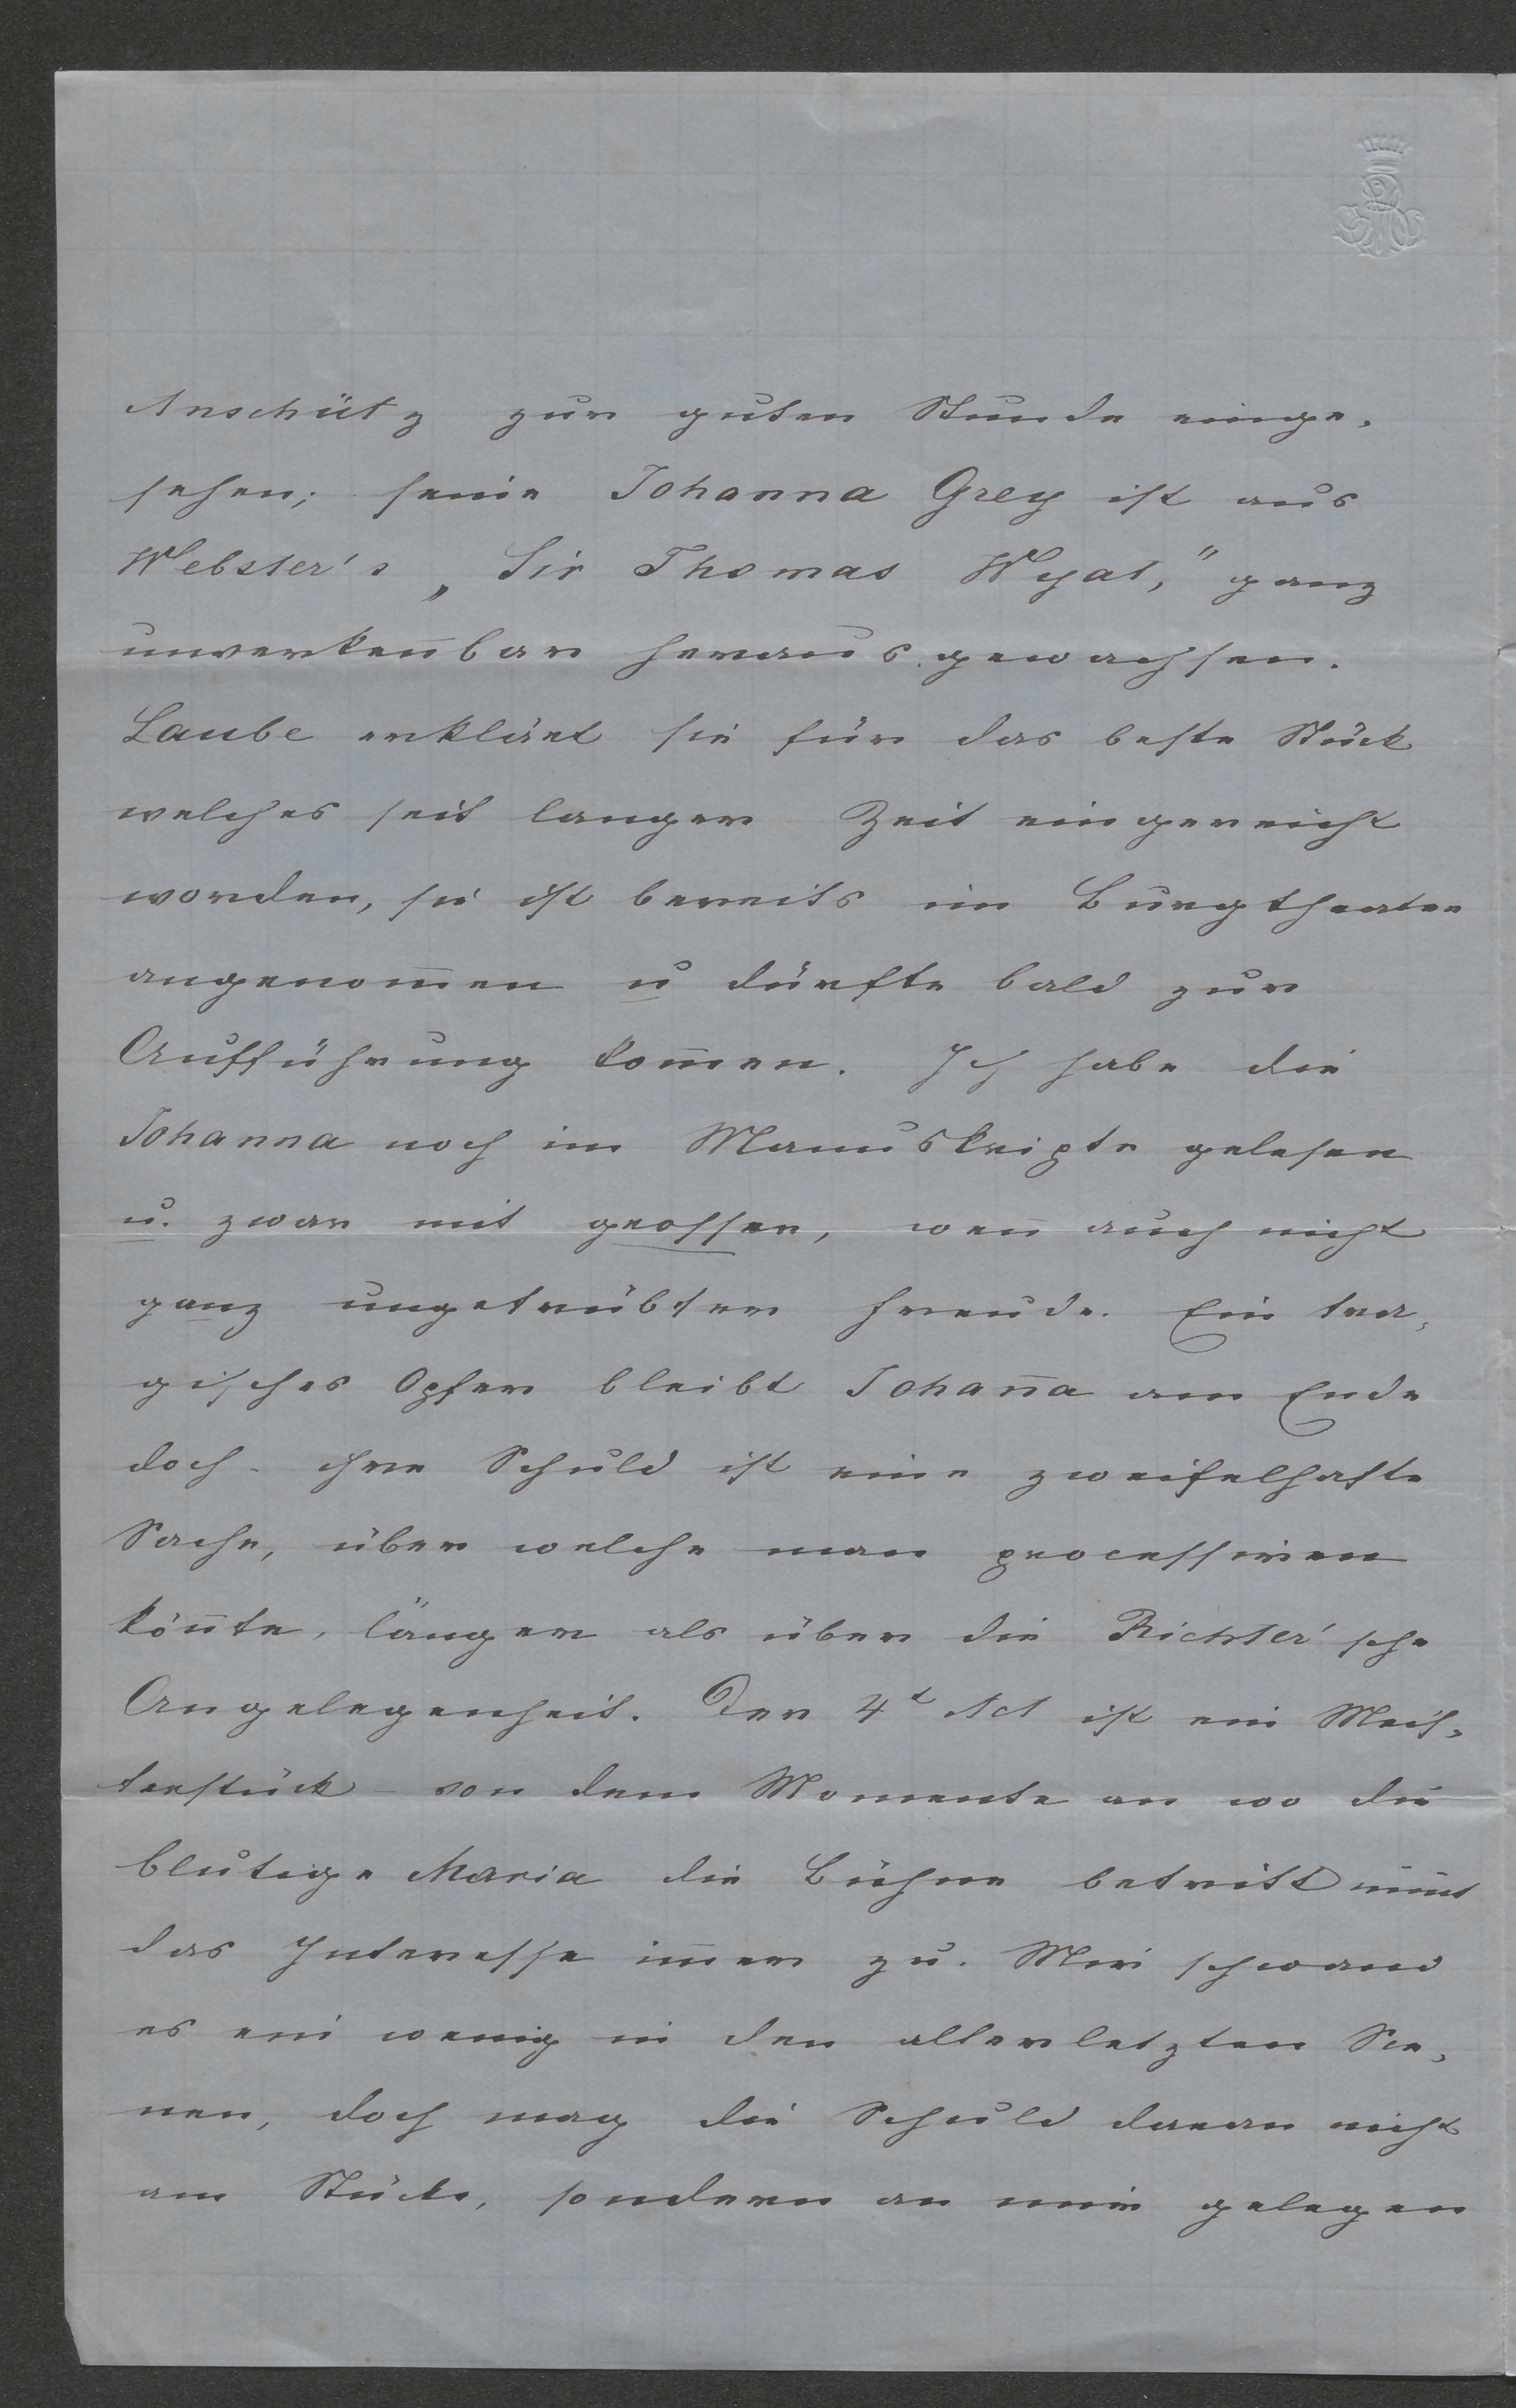 Anschütz zur guten Stunde einge-
sehen; seine Johanna Grey ist aus
Webster's „Sir Thomas Wyat," ganz
unverken̄bar herausgewachsen.
Laube erklärt sie für das beste Stück
welches seit langer Zeit eingereicht
worden, sie ist bereits im Burgtheater
angenom̄en u dürfte bald zur
Aufführung kom̄en. Ich habe die
Johanna noch im Manuskripte gelesen
u. zwar mit grosser, wen̄ auch nicht
ganz ungetrübter Freude. Ein tra-
gisches Opfer bleibt Johan̄a am Ende
doch - ihre Schuld ist eine zweifelhafte
Sache, über welche man processiren
kön̄te, länger als über die Richter'sche
Angelegenheit. Der 4t Act ist ein Meis-
terstück - von dem Momente an wo die
blutige Maria die Bühne betritt nim̄t
das Interesse im̄er zu. Mir schwand
es ein wenig in den allerletzten Sce-
nen, doch mag die Schuld daran nicht
am Stücke, sondern an mir gelegen